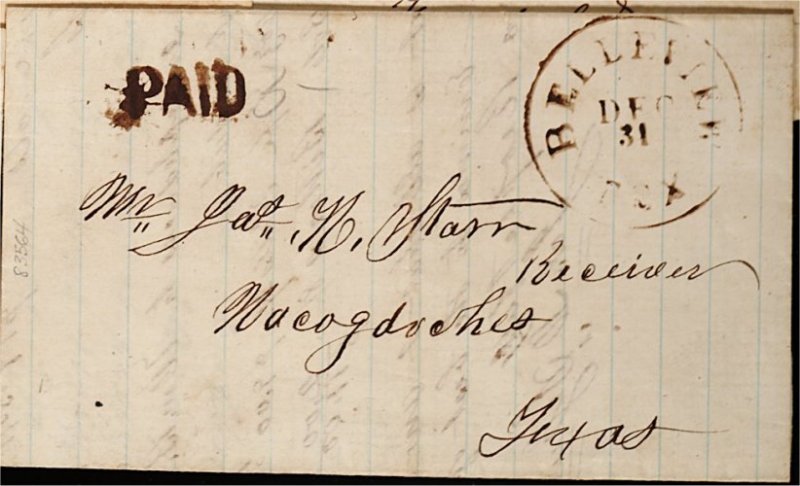 PAID
BELLEVILLE
DEC
31
TEX
Mr Jas. H. Starr
Receiver
Nacogdoches
Texas
83564